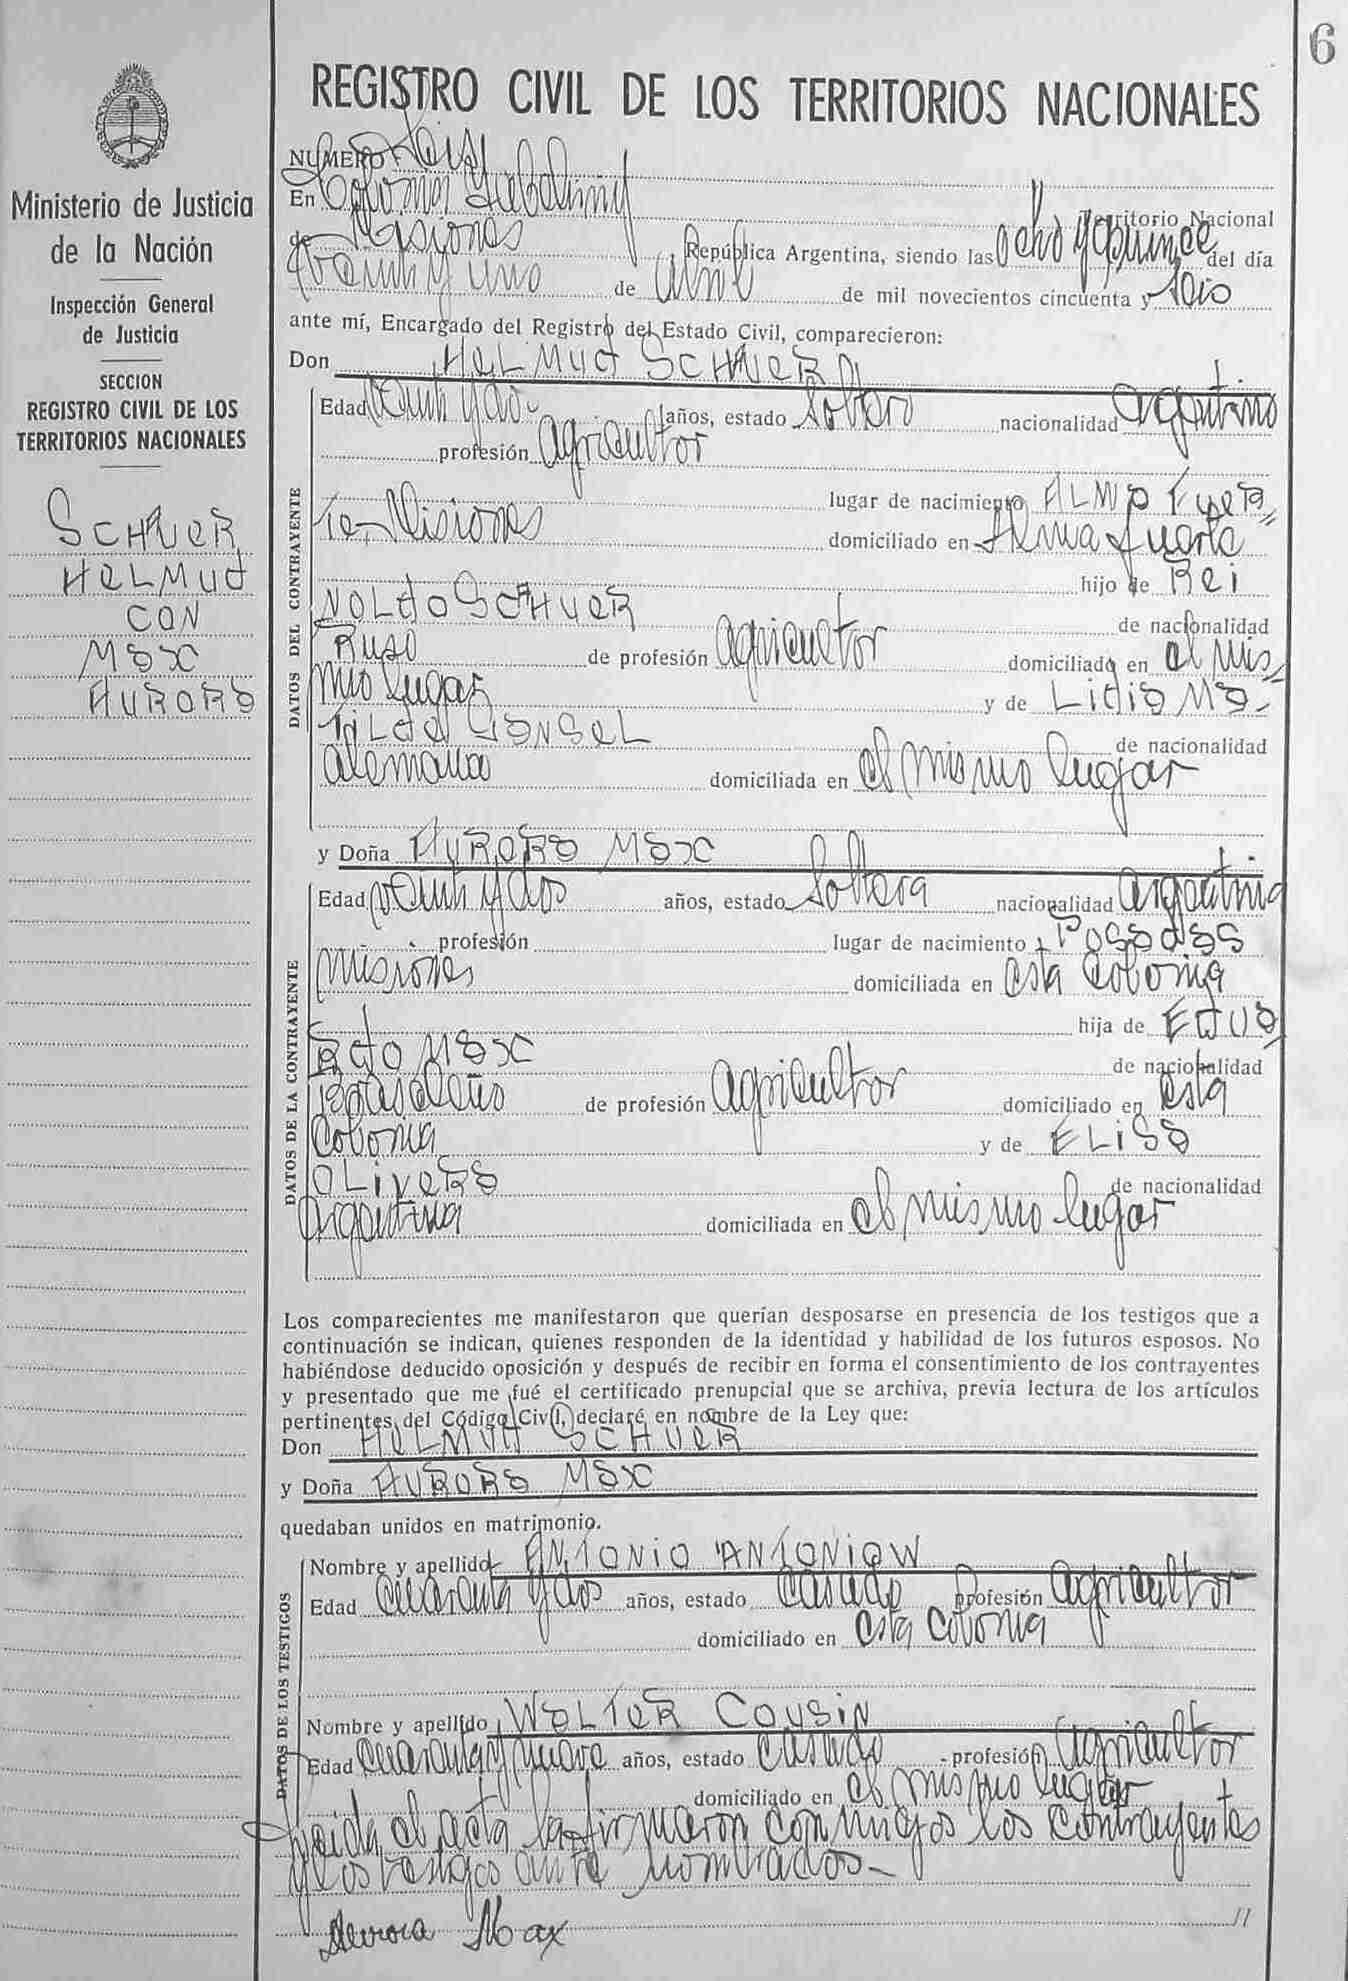 6
REGISTRO CIVIL DE LOS TERRITORIOS NACIONALES
Ministerio de Justicia
de la Nación
Inspección General
de Justicia
SECCION
REGISTRO CIVIL DE LOS
TERRITORIOS NACIONALES
SCHUER
HELMUT
CON
MAX
AURORA
NUMERO Seis
En Colonia Territorio Nacional
de Misiones República Argentina, siendo las ocho y quince del día
veinti y uno de abril de mil novecientos cincuenta y seis
ante mí, Encargado del Registro del Estado Civil, comparecieron:
Don HELMUT SCHUER
DATOS DEL CONTRAYENTE
Edad veinti y dos años, estado soltero nacionalidad argentino
profesión agricultor
lugar de nacimiento ALMA FUER
te- Misiones domiciliado en Alma fuerte
hijo de REI
NOLDO SCHUER de nacionalidad
Ruso de profesión agricultor domiciliado en el mis
mo lugar y de LIDIA MA-
TILDE de nacionalidad
alemana domiciliada en el mismo lugar
y Doña AURORA MAX
DATOS DE LA CONTRAYENTE
Edad veinti y dos años, estado soltera nacionalidad argentina
profesión lugar de nacimiento POSADAS
misiones domiciliada en esta colonia
hija de EDUA
RDO MAX de nacionalidad
brasileño de profesión agricultor domiciliado en esta
colonia y de ELISA
OLIVERA de nacionalidad
argentina domiciliada en el mismo lugar
Los comparecientes me manifestaron que querían desposarse en presencia de los testigos que a
continuación se indican, quienes responden de la identidad y habilidad de los futuros esposos. No
habiéndose deducido oposición y después de recibir en forma el consentimiento de los contrayentes
y presentado que me fué el certificado prenupcial que se archiva, previa lectura de los artículos
pertinentes del Código Civil, declaré en nombre de la Ley que:
Don HELMUT SCHUER
y Doña AURORA MAX
quedaban unidos en matrimonio.
DATOS DE LOS TESTIGOS
Nombre y apellido ANTONIO ANTONIOW
Edad cuarenta y dos años, estado casado profesión agricultor
domiciliado en esta colonia
Nombre y apellido WALTER COUSIN
Edad cuarenta y nueve años, estado casado profesión agricultor
domiciliado en el mismo lugar
Leida el acta la firmaron conmigo los contrayentes
y los testigos ante nombrados-
Aurora Max